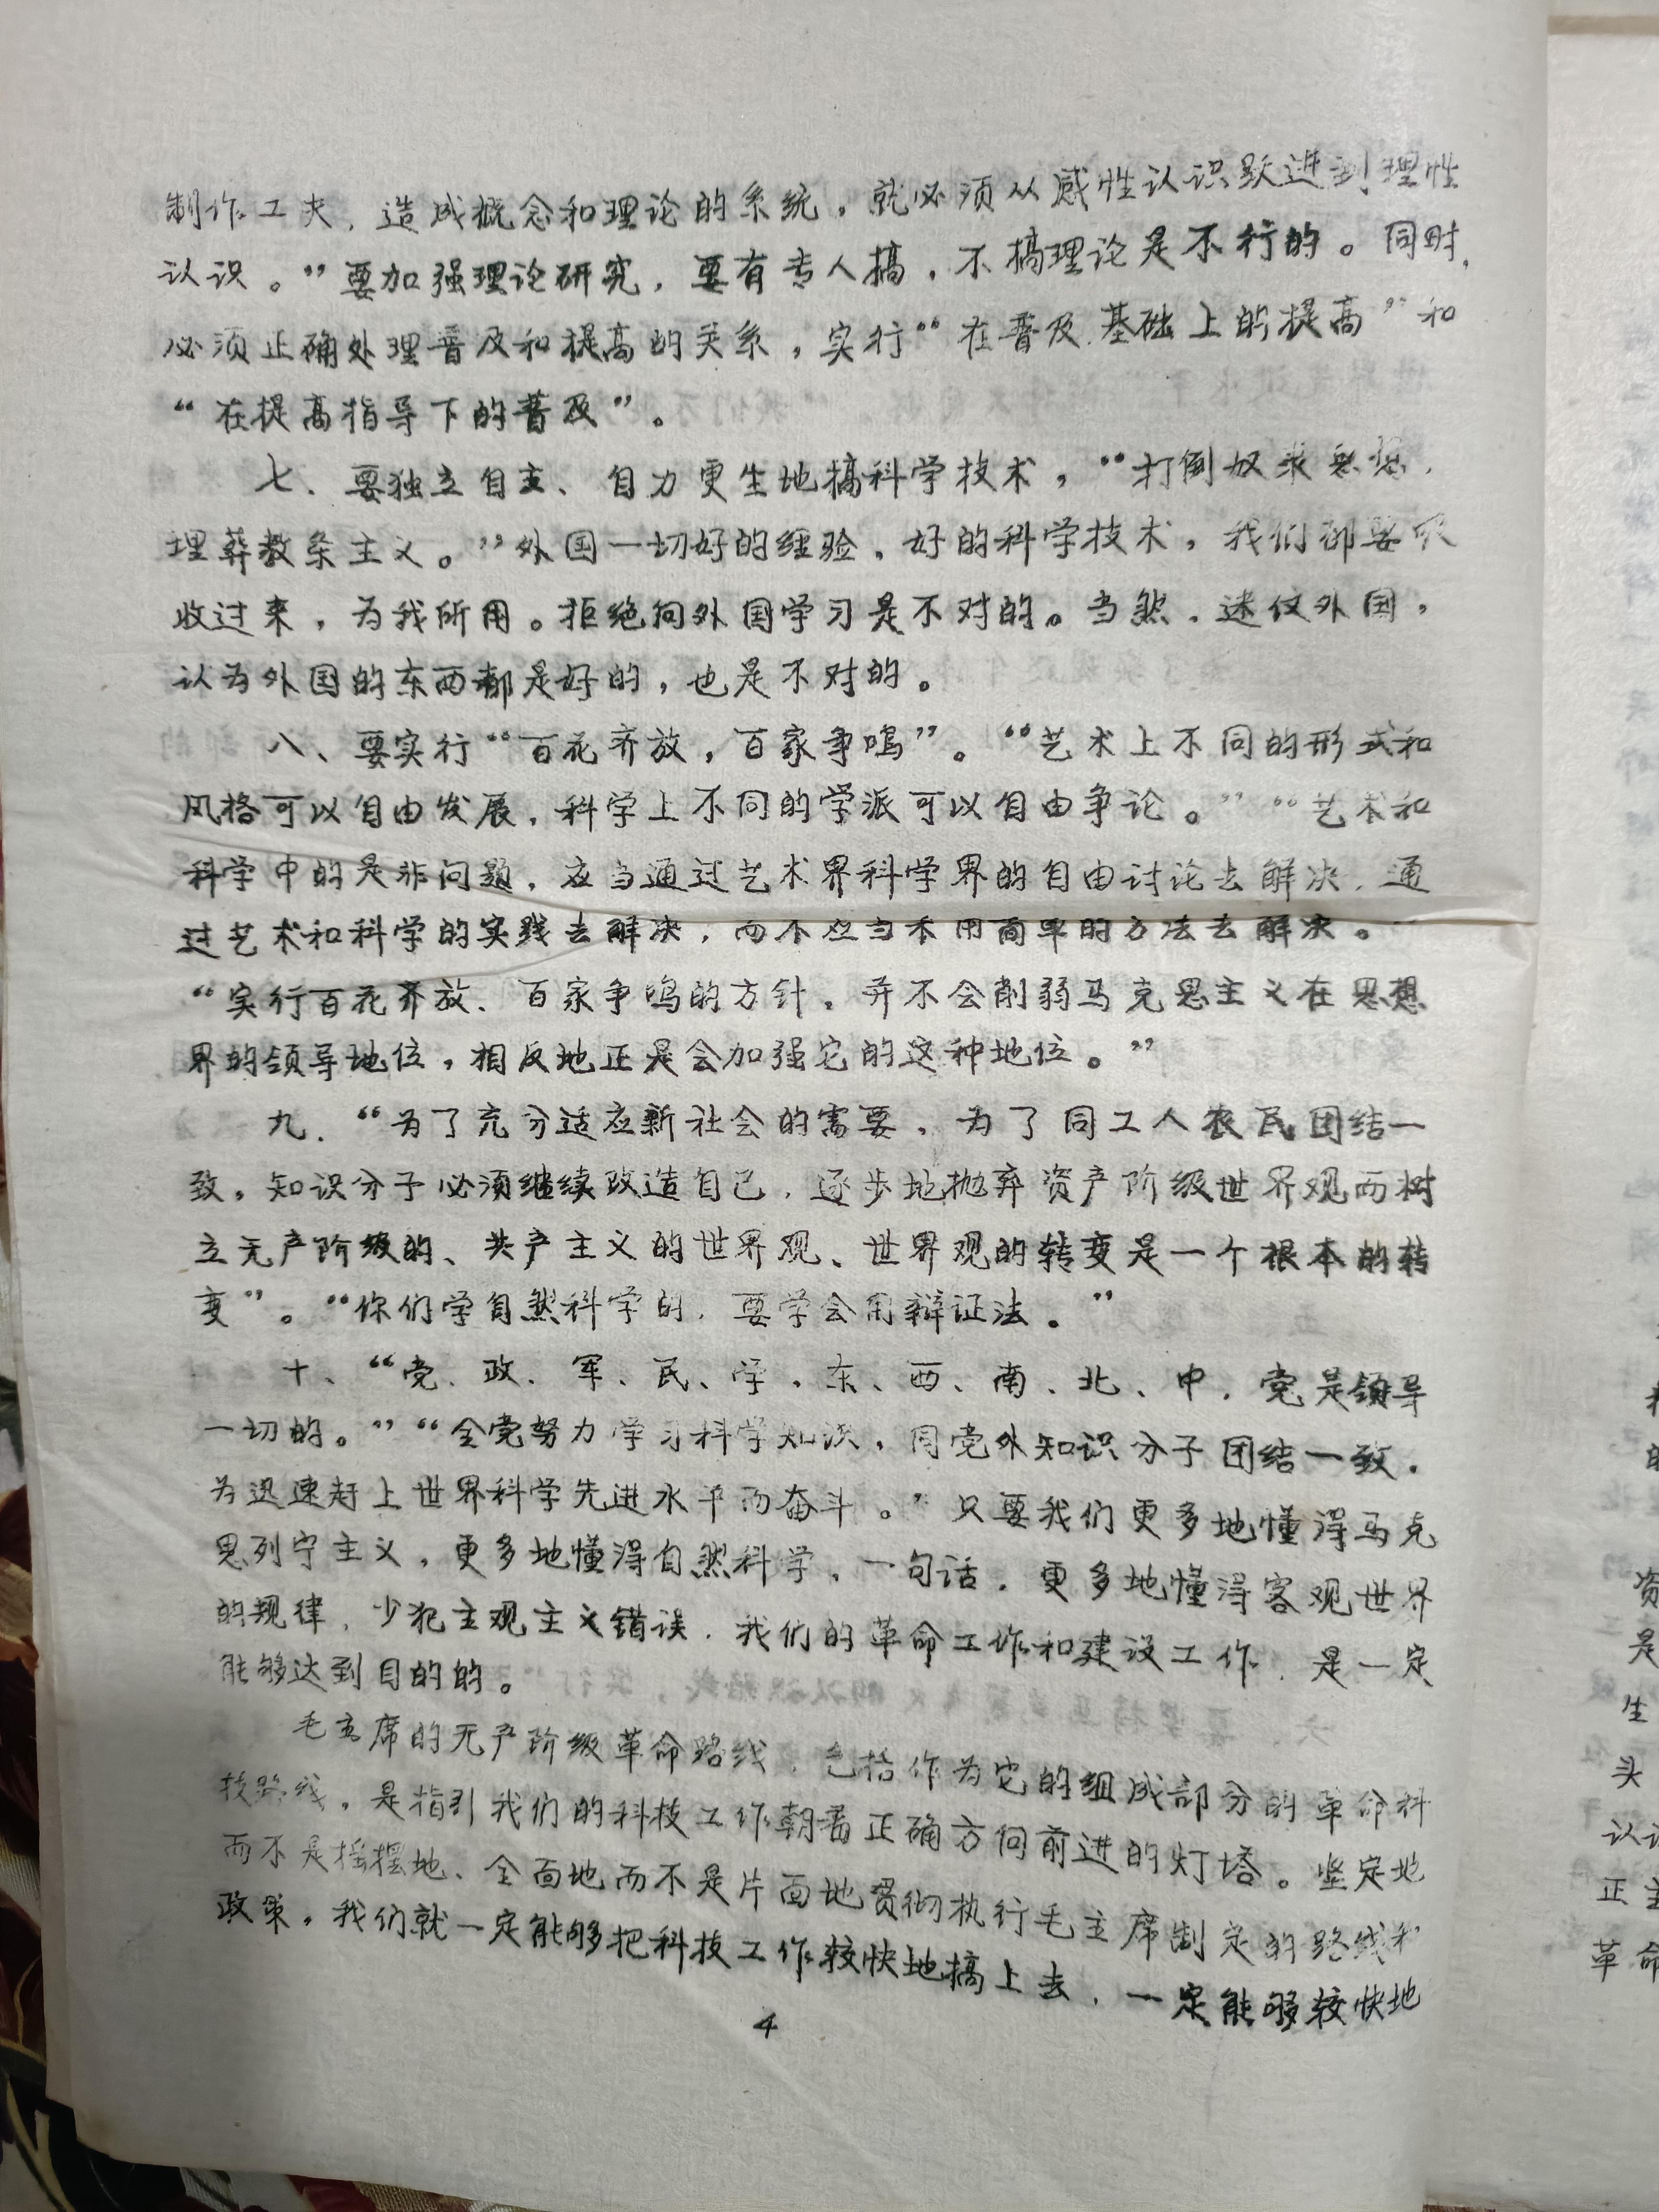 制作工夫，造成概念和理论的系统，就必须从感性认识跃进到理性
认识。”要加强理论研究，要有专人搞，不搞理论是不行的。同时，
必须正确处理普及和提高的关系，实行“在普及基础上的提高”和
“在提高指导下的普及”。
七、要独立自主、自力更生地搞科学技术，“打倒奴隶思想，
埋葬教条主义。”外国一切好的经验，好的科学技术，我们都要吸
收过来，为我所用。拒绝向外国学习是不对的。当然，迷仅外国，
认为外国的东西都是好的，也是不对的。
八、要实行“百花齐放，百家争鸣”。“艺术上不同的形式和
风格可以自由发展，科学上不同的学派可以自由争论。”“艺术和
科学中的是非问题，应当通过艺术界科学界的自由讨论去解决，通
过艺术和科学的实践去解决，而不应当采用简单的方法去解决。”
“实行百花齐放、百家争鸣的方针，并不会削弱马克思主义在思想
界的领导地位，相反地正是会加强它的这种地位。”
九、“为了充分适应新社会的需要，为了同工人农民团结一
致，知识分子必须继续改造自己，逐步地抛弃资产阶级世界观而树
立无产阶级的、共产主义的世界观、世界观的转变是一个根本的转
变”。“你们学自然科学的，要学会用辩证法。”
十、“党、政、军、民、学，东、西、南、北、中，党是领导
一切的。”“全党努力学习科学知识，同党外知识分子团结一致，
为迅速赶上世界科学先进水平而奋斗。”只要我们更多地懂得马克
思列宁主义，更多地懂得自然科学，一句话，更多地懂得客观世界
的规律，少犯主观主义错误，我们的革命工作和建设工作，是一定
能够达到目的的。
毛主席的无产阶级革命路线，包括作为它的组成部分的革命科
技路线，是指引我们的科技工作朝着正确方向前进的灯塔。坚定地
而不是摇摆地、全面地而不是片面地贯彻执行毛主席制定的路线和
政策，我们就一定能够把科技工作较快地搞上去，一定能够较快地
4
资
是
生
头
认识
正主
革命